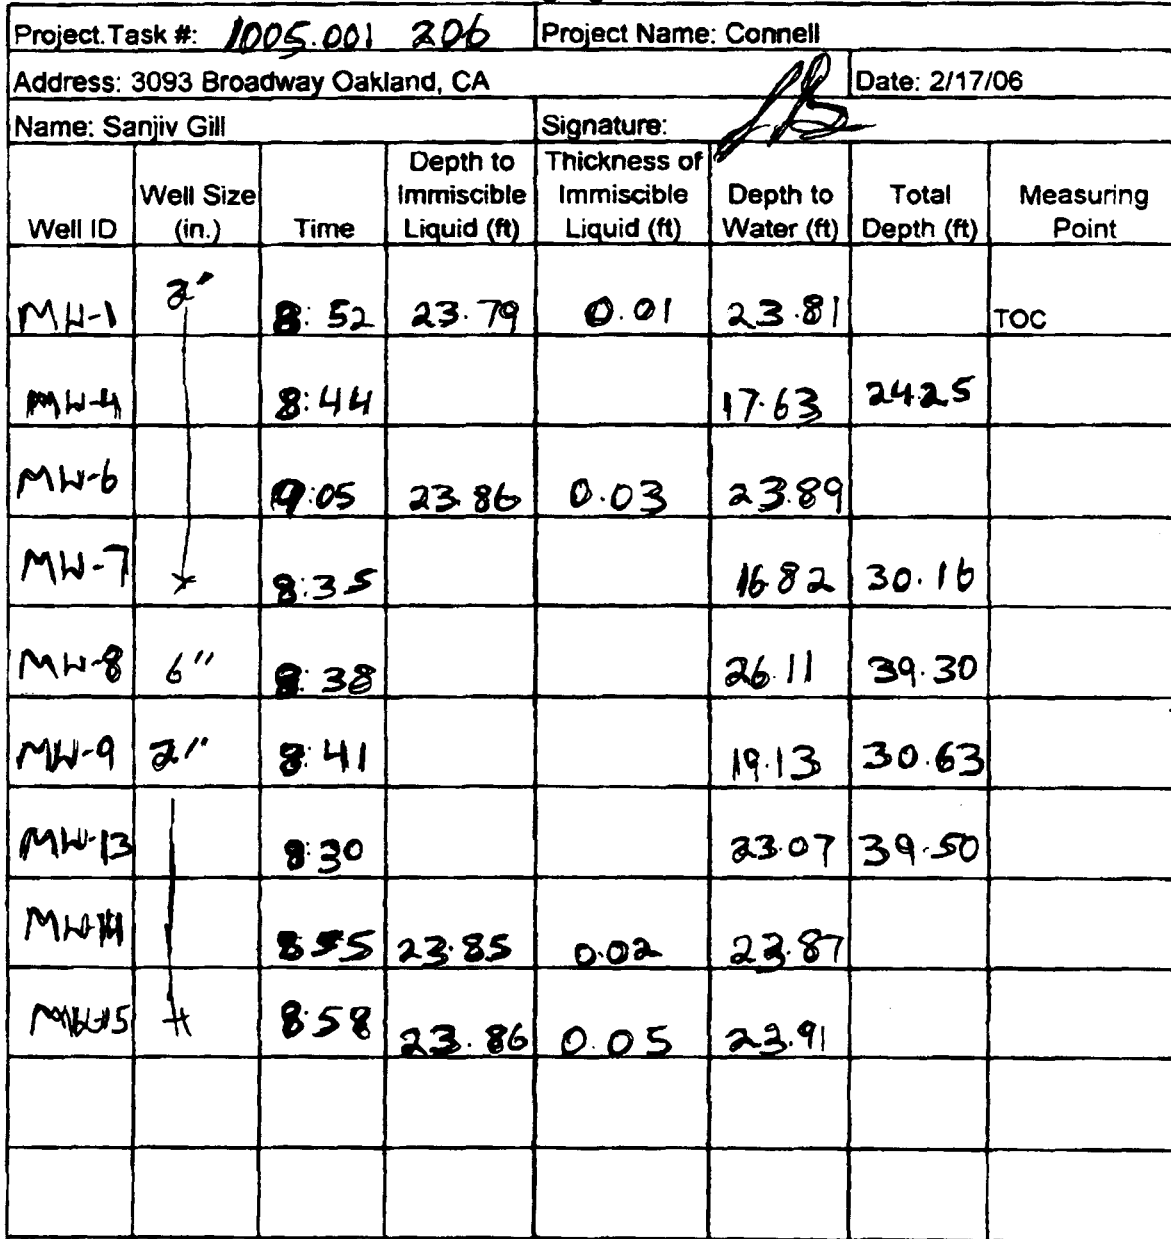 Project.Task #: 1005.001 206 Project Name: Connell
Address: 3093 Broadway Oakland, CA Date: 2/17/06
Name: Sanjiv Gill Signature:
Well ID Well Size (in.) Time Depth to Immiscible Liquid (ft) Thickness of Immiscible Liquid (ft) Depth to Water (ft) Total Depth (ft) Measuring Point
MW-1 2" 8:52 23.79 0.01 23.81 TOC
MW-4 8:44 17.63 24.25
MW-6 9:05 23.86 0.03 23.89
MW-7 8:35 16.82 30.16
MW-8 6" 8:38 26.11 39.30
MW-9 2" 8:41 19.13 30.63
MW-13 8:30 23.07 39.50
MW-14 8:55 23.85 0.02 23.87
MW-15 8:58 23.86 0.05 23.91